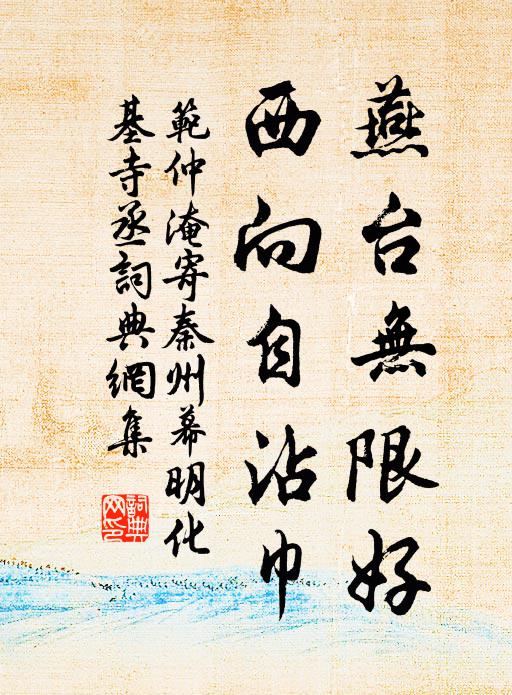 燕台無限好
西向自沾巾
範仲淹寄秦州幕明化
基寺丞詞典網集
詞典
网印